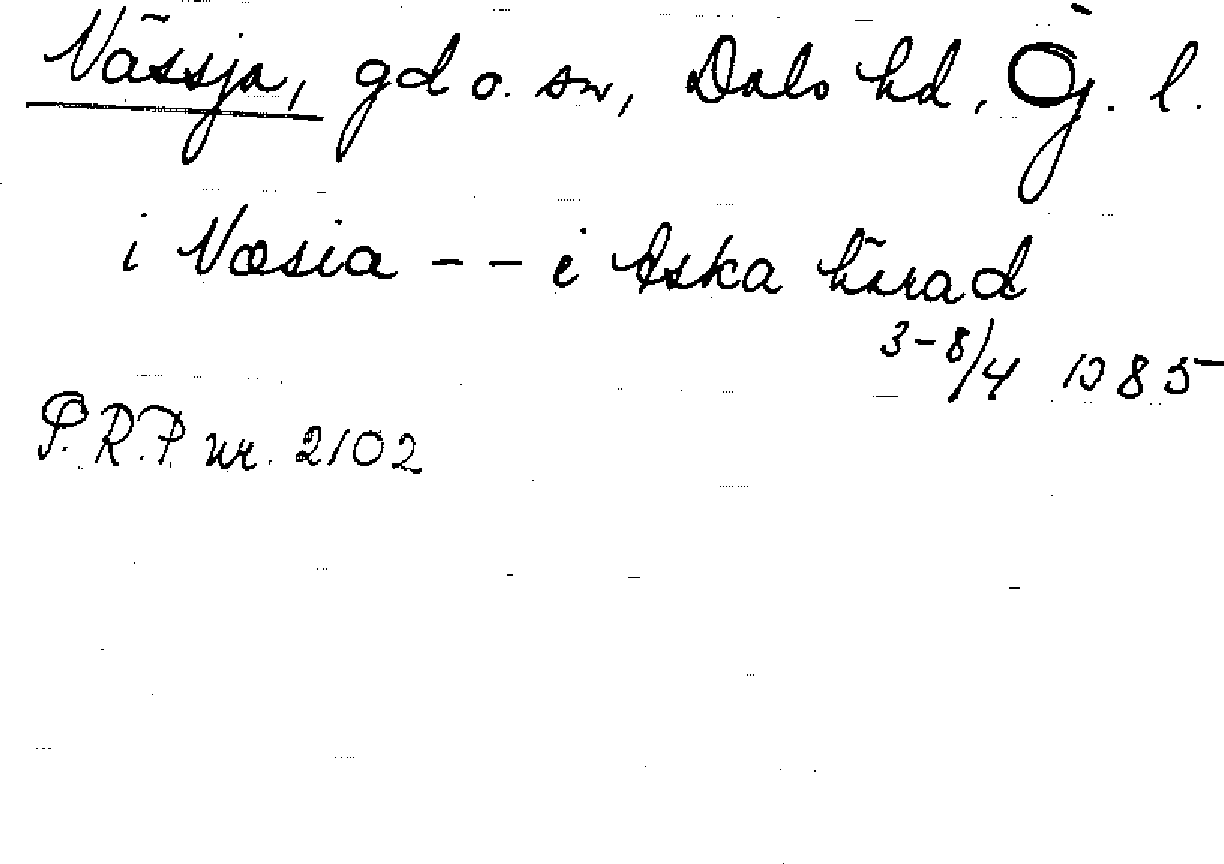 Vässja, gd o. sn, Dals hd, Ög. l.
i Væsia -- i Aska härad
3-8/4 1385
P.R.P nr. 2102